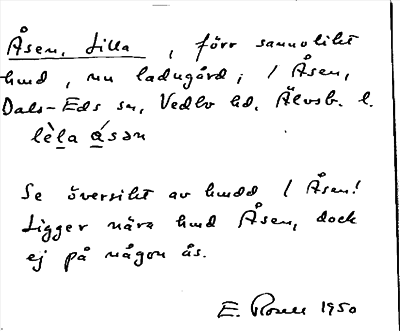 Åsen, Lilla, förr sannolikt
hmd, nu ladugård, i Åsen,
Dals-Eds sn, Vedbo hd, Älvsb. l.
lèla ásən
Se översikt av hmdd i Åsen!
Ligger nära hmd Åsen, dock
ej på någon ås.
E. 1950